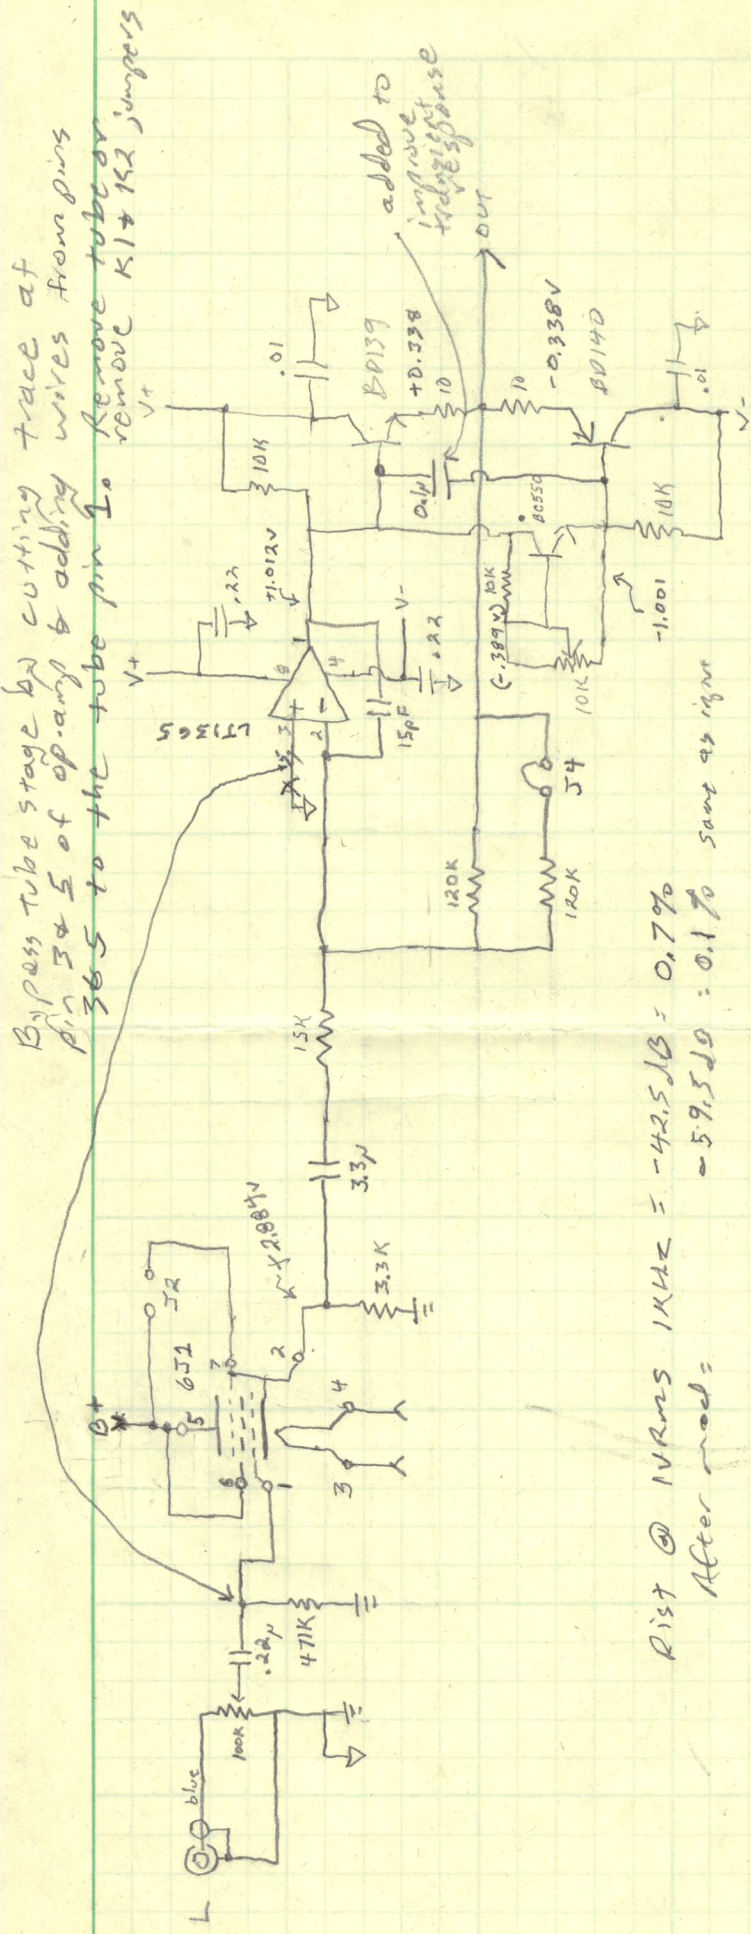 Bypass tube stage by cutting trace at
pin 3 & 5 of op-amp & adding wires from pins
3 & 5 to the tube pin 1. Remove tube or
remove K1 & K2 jumpers
L
blue
100K
.22µ
471K
B+
J2
6J1
5
6
7
1
2
3
4
2.884V
3.3K
3.3µ
15K
LT1365
V+
.22
3
2
8
4
1
+1.012V
15pF
V-
.22
120K
120K
J4
V+
10K
.01
BD139
+0.338
10
0.1µ
added to
improve
transient
response
OUT
10
-0.338V
BD140
.01
V-
BC550
10K
(-.389V)
10K
10K
-1.001
Dist @ 1VRMS 1KHz = -42.5dB = 0.7%
After mod = -59.5dB = 0.1% same as